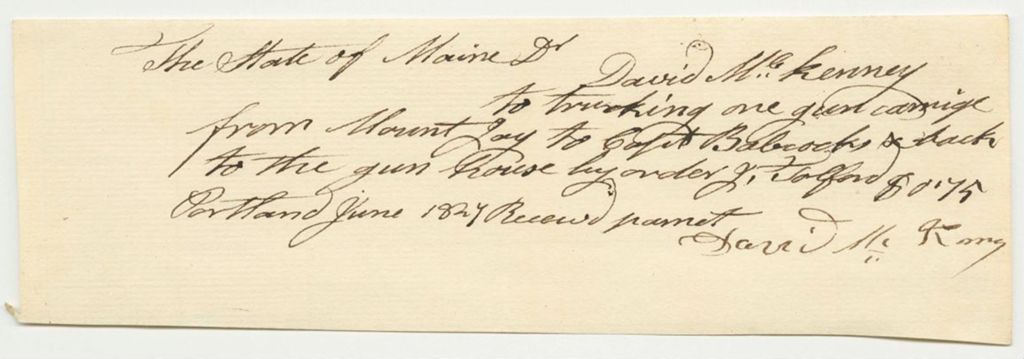 The State of Maine Dr
David Mc Kenney
to trucking one gun carrige
from Mount Joy to Capt Babcocks & back
to the gun house by order J. Tolford $0.75
Portland June 1827 Receivd pamet
David Mc Keney